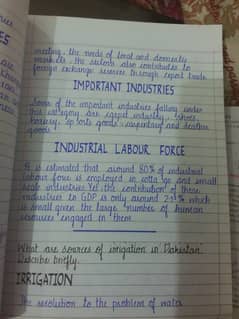 meeting the needs of local and domestic
markets, the sectors also contributes to
foreign exchange reserves through export trade.
IMPORTANT INDUSTRIES
Some of the important industries falling under
this category are carpet industry, shoes,
hosiery, sports goods, carpentary and leather
goods.
INDUSTRIAL LABOUR FORCE
It is estimated that around 80% of industrial
labour force is employed in cottage and small
scale industries. Yet, the contribution of these
industries to GDP is only around
is small given the large number of human
resources engaged in them.
What are sources of irrigation in Pakistan.
Describe briefly.
IRRIGATION
The resolution to the problem of water